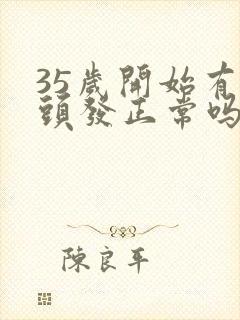 35歲開始有
頭發正常吗
陳良平